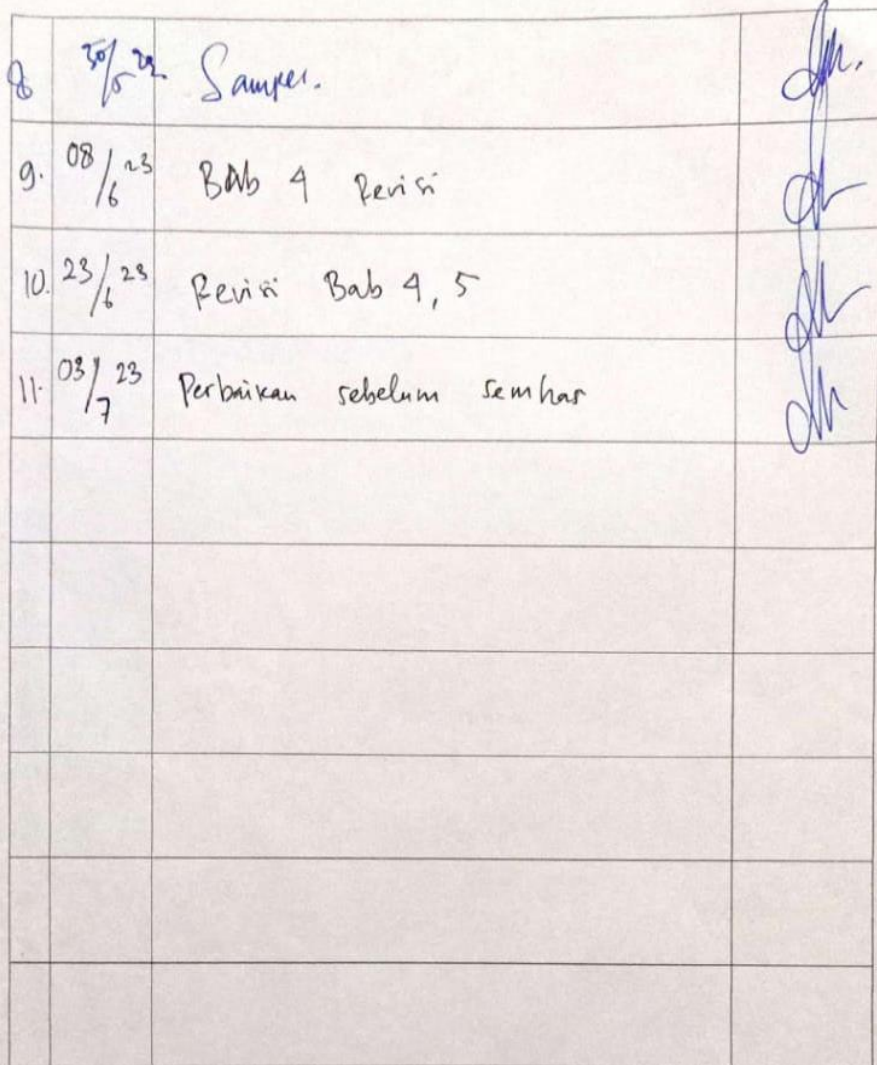 8 30/5 22 Samper.
9. 08/6 23 Bab 4 Revisi
10. 23/6 23 Revisi Bab 4, 5
11. 03/7 23 Perbaikan sebelum semhas